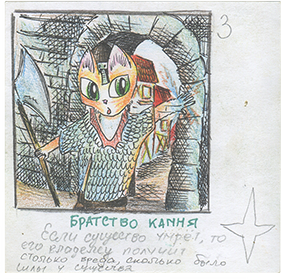 3
БРАТСТВО КАМНЯ
Если существо умрёт, то
его владелец получит
столько вреда, сколько было
силы у существа